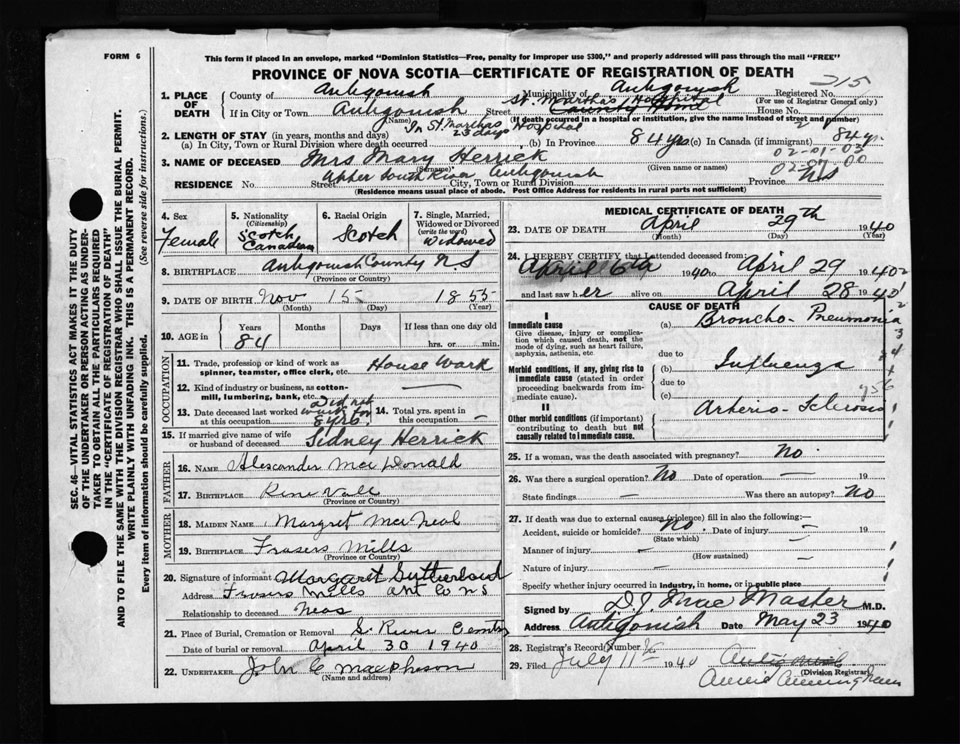 FORM 6
This form if placed in an envelope, marked "Dominion Statistics—Free, penalty for improper use $300," and properly addressed will pass through the mail "FREE"
PROVINCE OF NOVA SCOTIA—CERTIFICATE OF REGISTRATION OF DEATH
215
1. PLACE OF DEATH
County of Antigonish Municipality of Antigonish Registered No.
(For use of Registrar General only)
If in City or Town Antigonish Street St. Martha's Hospital House No.
(Name) (If death occurred in a hospital or Institution, give the name instead of street and number)
2. LENGTH OF STAY (in years, months and days)
In St. Marthas Hospital
(a) In City, Town or Rural Division where death occurred 23 days (b) In Province 84 yrs (c) In Canada (if immigrant) 84 yr.
02-01-03
3. NAME OF DECEASED Mrs Mary Herrick
(Surname) (Given name or names)
RESIDENCE No. Street Upper South River Antigonish City, Town or Rural Division Province N.S
(Residence means usual place of abode. Post Office Address for residents in rural parts not sufficient)
SEC. 46—VITAL STATISTICS ACT MAKES IT THE DUTY OF THE UNDERTAKER OR PERSON ACTING AS UNDERTAKER TO OBTAIN ALL THE PARTICULARS REQUIRED IN THE "CERTIFICATE OF REGISTRATION OF DEATH" AND TO FILE THE SAME WITH THE DIVISION REGISTRAR WHO SHALL ISSUE THE BURIAL PERMIT.
WRITE PLAINLY WITH UNFADING INK. THIS IS A PERMANENT RECORD.
Every item of information should be carefully supplied. (See reverse side for instructions.)
4. Sex
Female
5. Nationality
(Citizenship)
Scotch
Canadian
6. Racial Origin
Scotch
7. Single, Married, Widowed or Divorced
(write the word)
Widowed
8. BIRTHPLACE Antigonish County N S
(Province or Country)
9. DATE OF BIRTH Nov 15 1855
(Month) (Day) (Year)
10. AGE in
Years Months Days If less than one day
84 hrs. or min.
OCCUPATION
11. Trade, profession or kind of work as spinner, teamster, office clerk, etc. House Work
12. Kind of industry or business, as cotton-mill, lumbering, bank, etc. —
13. Date deceased last worked at this occupation Did not work for 8 yrs.
14. Total yrs. spent in this occupation —
15. If married give name of wife or husband of deceased Sidney Herrick
FATHER
16. NAME Alescander MacDonald
17. BIRTHPLACE
(Province or Country)
MOTHER
18. MAIDEN NAME Margret MacNeal
19. BIRTHPLACE Frasers Mills
(Province or Country)
20. Signature of informant Margaret Sutherland
Address Frasers Mills Ant Co N S
Relationship to deceased
21. Place of Burial, Cremation or Removal S. River
Date of burial or removal April 30 1940
22. UNDERTAKER John C MacPherson
(Name and address)
MEDICAL CERTIFICATE OF DEATH
23. DATE OF DEATH April 29th 1940
(Month) (Day) (Year)
24. I HEREBY CERTIFY that I attended deceased from:
April 6th 1940 to April 29 1940
and last saw her alive on April 28 1940
CAUSE OF DEATH
I
Immediate cause
Give disease, injury or complication which caused death, not the mode of dying, such as heart failure, asphyxia, asthenia, etc.
(a) Broncho-Pneumonia
due to
Morbid conditions, if any, giving rise to immediate cause (stated in order proceeding backwards from immediate cause).
(b) Influenza
due to
(c)
II
Other morbid conditions (if important) contributing to death but not causally related to immediate cause.
Arterio-Sclerosis
25. If a woman, was the death associated with pregnancy? No.
26. Was there a surgical operation? No Date of operation —
State findings — Was there an autopsy? No
27. If death was due to external causes (violence) fill in also the following:—
Accident, suicide or homicide? No. Date of injury — 19
(State which)
Manner of injury — —
(How sustained)
Nature of injury —
Specify whether injury occurred in industry, in home, or in public place —
Signed by D.J. MacMaster M.D.
Address Antigonish Date May 23 1940
28. Registrar's Record Number
29. Filed July 11th 1940
(Division Registrar)